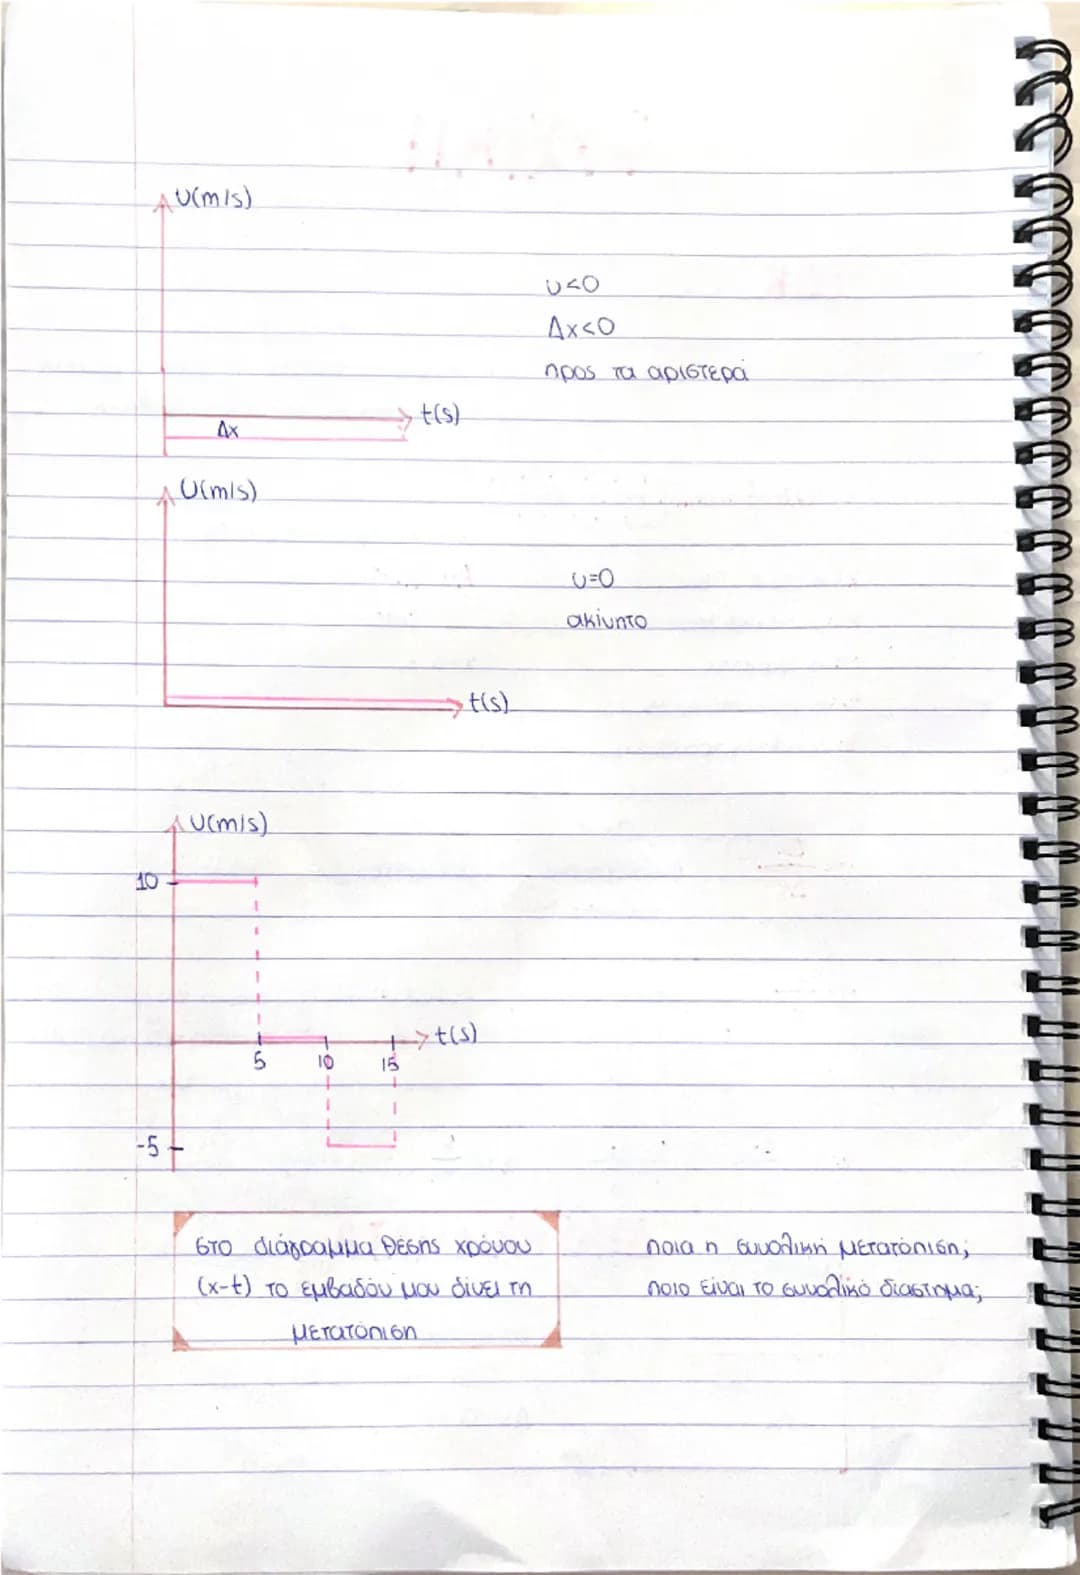 υ(m/s)
υ<0
Δx<0
προς τα αριστερά
t(s)
Δx
υ(m/s)
υ=0
ακίνητο
t(s)
υ(m/s)
10
t(s)
5
10
15
-5
στο διάγραμμα θέσης χρόνου
(x-t) το εμβαδόν μου δίνει τη
μετατόπιση
ποια η συνολική μετατόπιση;
ποιο είναι το συνολικό διάστημα;